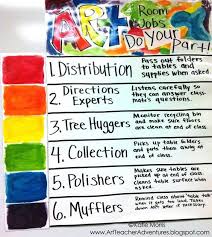 ART Room
Jobs
Do Your Part!
1. Distribution
Pass out folders
to tables and
supplies when asked
2. Directions
Experts
Listens carefully so
they can answer class-
mate's questions.
3. Tree Huggers
Monitors recycling bin
and makes sure floors
are clean at end of class.
4. Collection
Picks up table folders
and puts them away at
end of class.
5. Polishers
Makes sure tables are
at end of class.
cleans table surface when
asked.
6. Mufflers
Remind class
down left if necessary.
©Katie Morris
www.ArtTeacherAdventures.blogspot.com